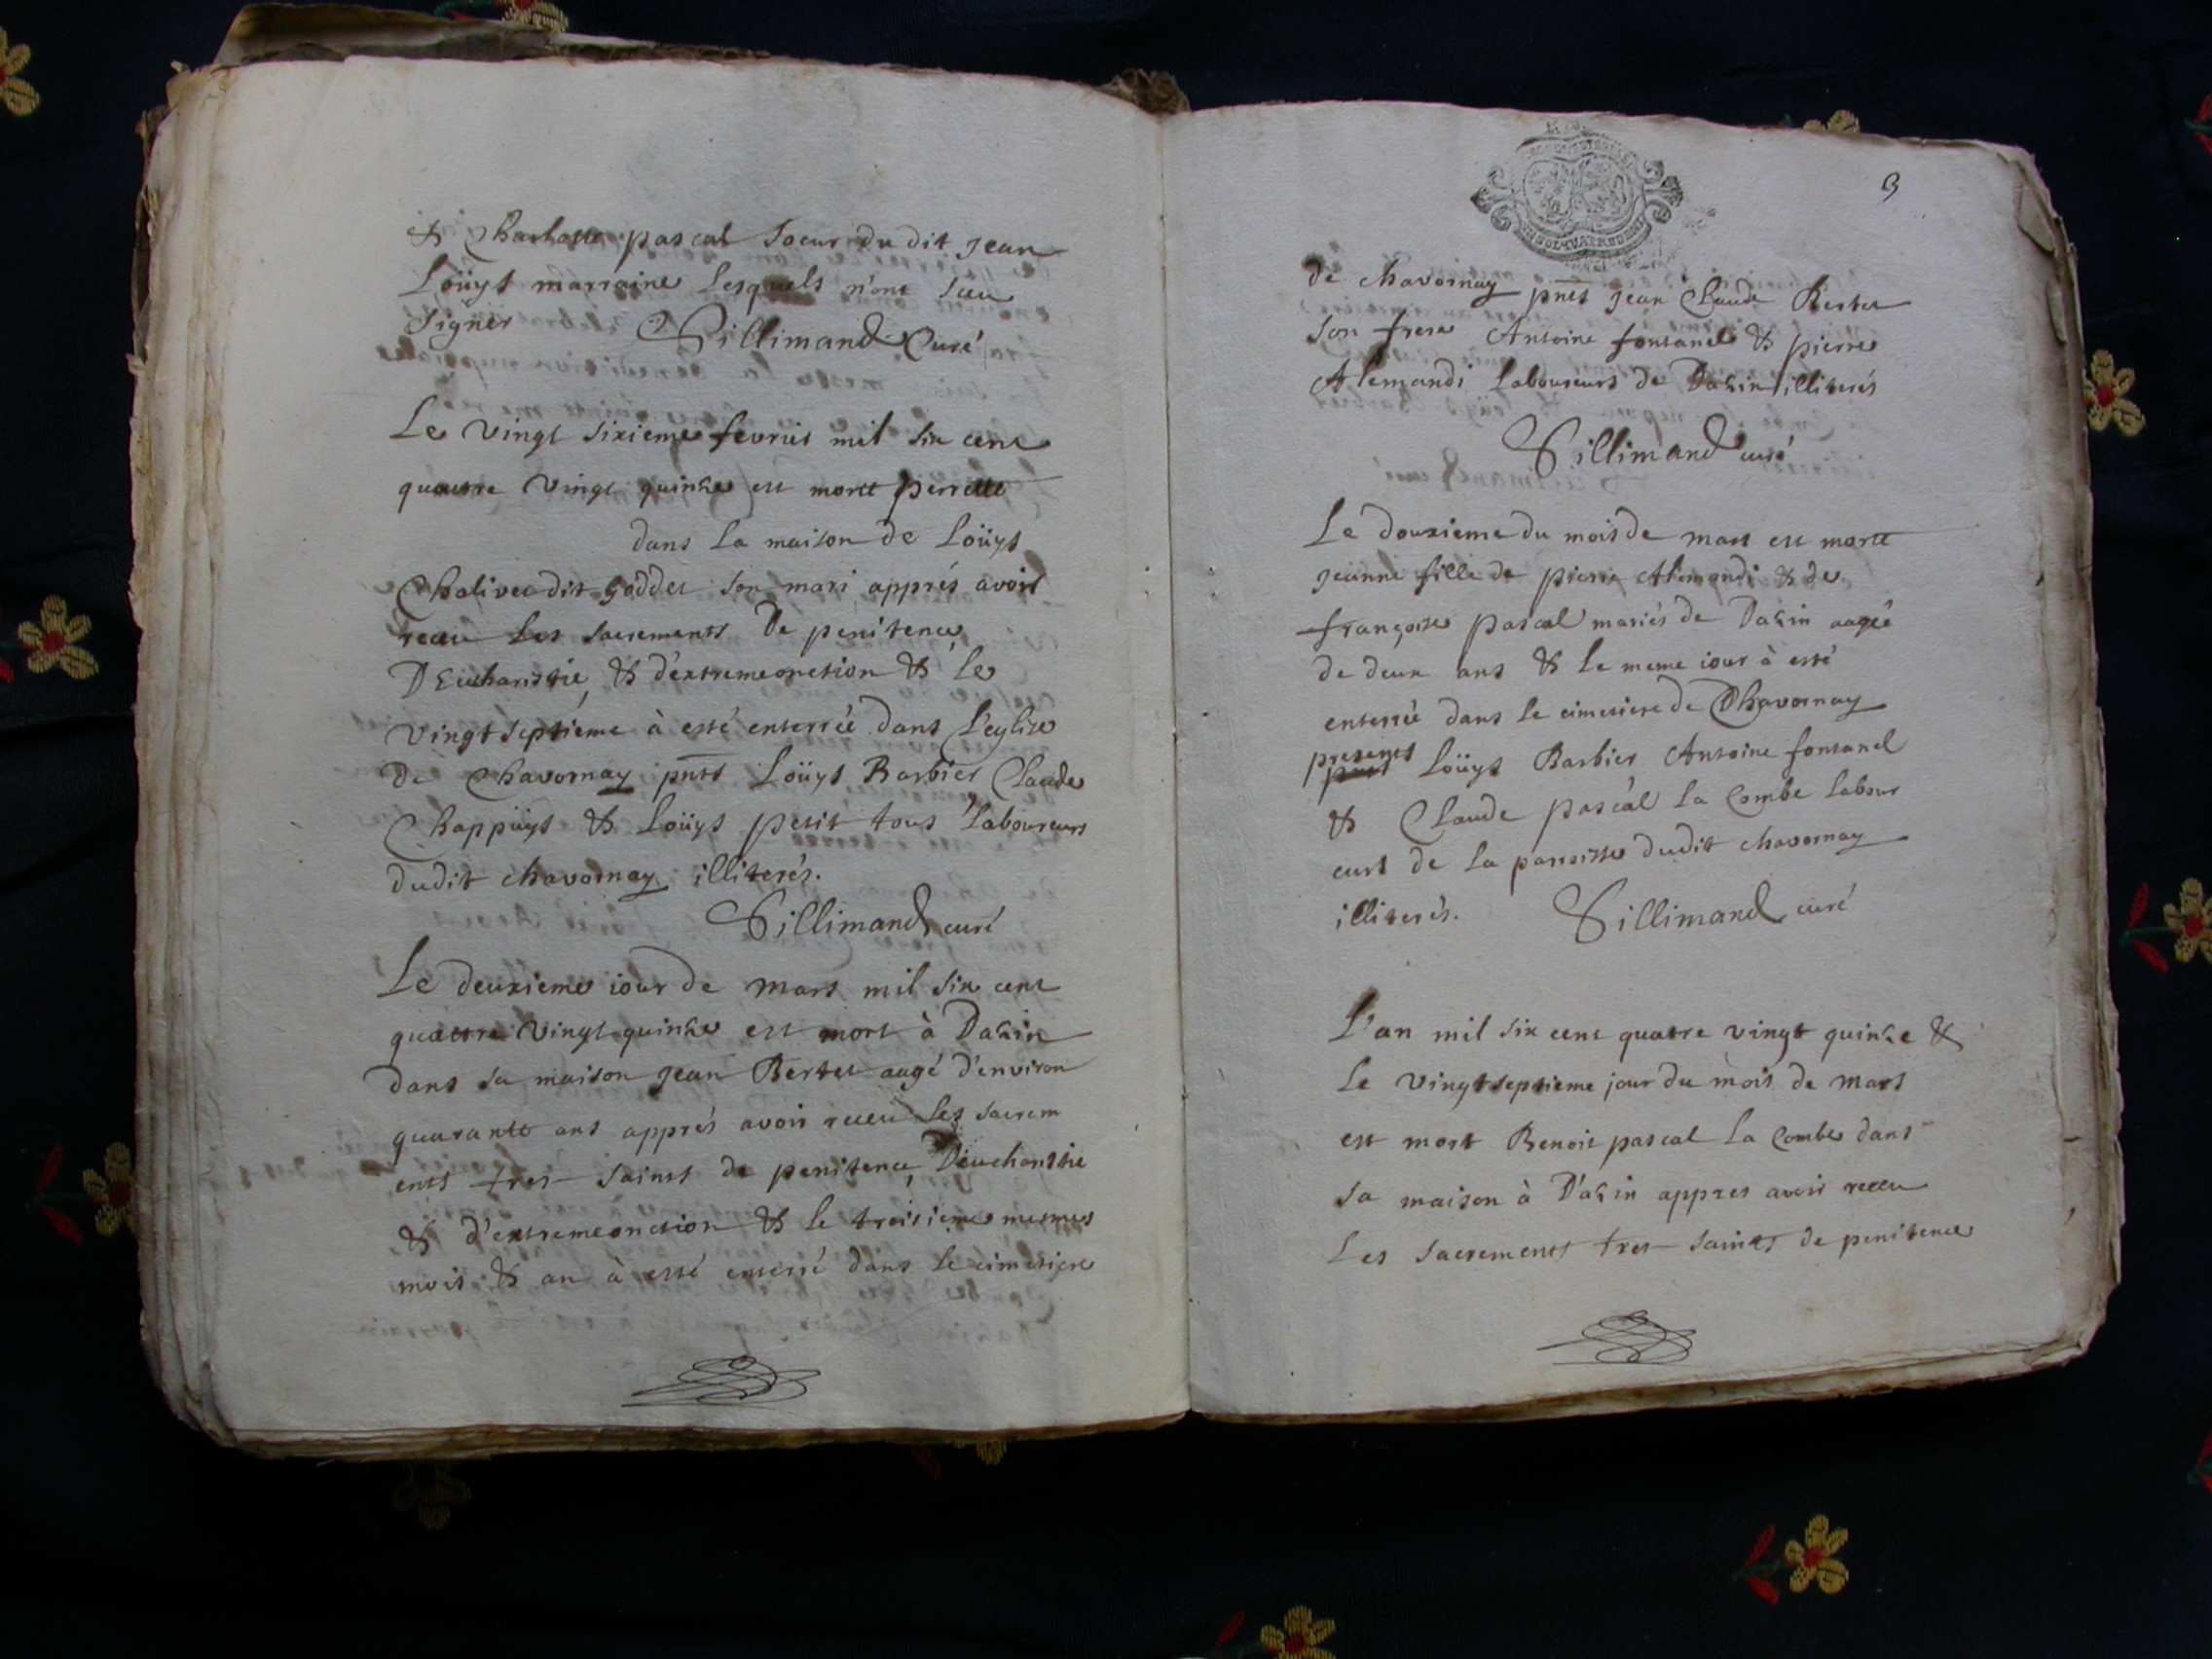 & Charlotte pascal soeur du dit Jean
Loüys marraine lesquels n'ont sceu
signer Sillimand Curé
Le vingt sixieme fevrier mil six cent
quattre vingt quinze est morte perrette
dans la maison de Loüys
Chalivet dit goddet son mari apprés avoir
receu les sacrements De penitence
D'Eucharistie, & d'extremeonction & le
vingt septieme à esté enterrée dans l'eglise
de Chavornay pnts Loüys Barbier Claude
Chappuys & Loüys petit tous laboureurs
dudit chavornay illiterés.
Sillimand curé
Le deuxieme iour de mars mil six cent
quattre vingt quinze est mort à Dazin
dans sa maison Jean Bertet aagé d'environ
quarante ans apprés avoir receu les sacrem
ents tres saints de penitence, D'eucharistie
& d'extremeonction & le troisieme mesmes
mois & an à esté enterré dans le cimetiere
9
de chavornay pnts Jean Claude Bertet
son frere Antoine fontanel & pierre
Alemandi laboureurs de Dazin illiterés
Sillimand curé
Le douzieme du mois de mars est morte
Jeanne fille de pierre Alemandi & de
françoise pascal mariés de Dazin aagée
de deux ans & le meme iour à esté
enterrée dans le cimetiere de Chavornay
presents
pnts Loüys Barbier Antoine fontanel
& Claude pascal la Combe labour
eurs de la parroisse dudit chavornay
illiterés. Sillimand curé
L'an mil six cent quatre vingt quinze &
le vingtseptieme jour du mois de mars
est mort Benoit pascal la Combe dans
sa maison à D'azin appres avoir receu
Les sacrements tres saints de penitence